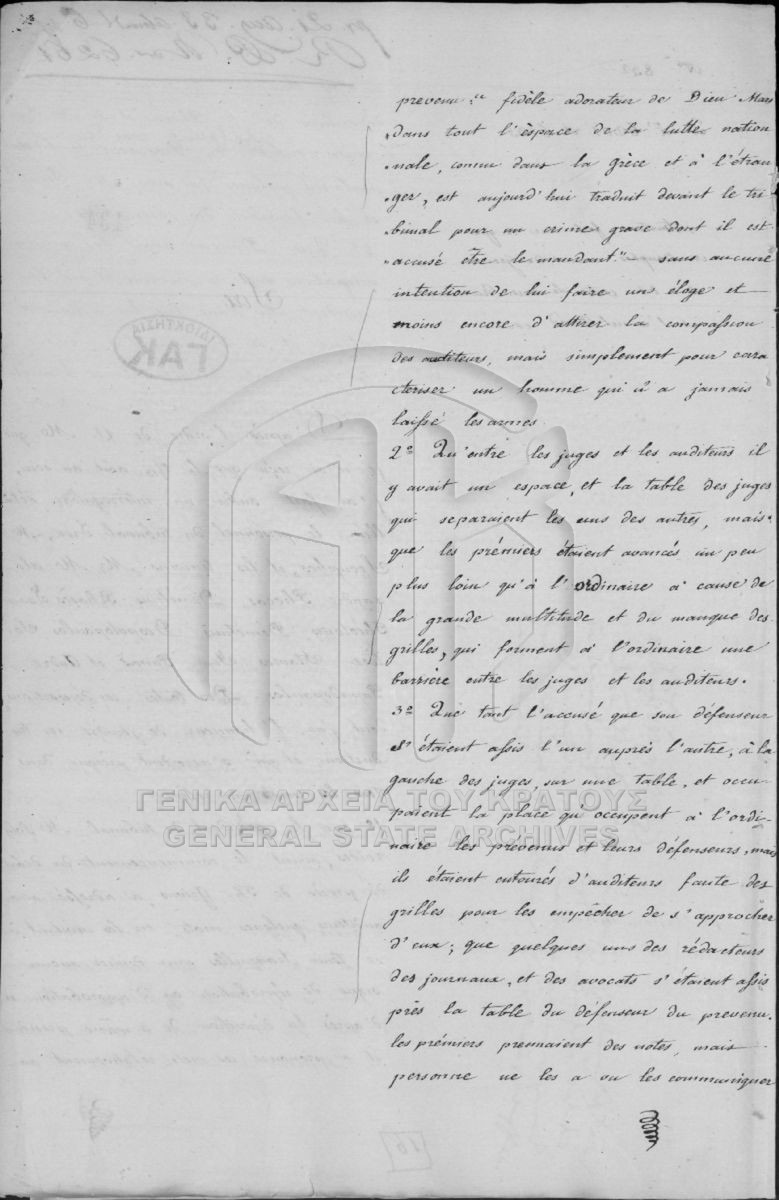 prevenu :" fidèle adorateur de Dieu Mars
" dans tout l'èspace de la lutte natio-
" nale, connu dans la grèce et à l'étran
" ger, est aujourd'hui traduit devant le tri
" bunal pour un crime grave dont il est
" accusé être le mandant." — sans aucune
intention de lui faire un éloge et —
moins encore d'attirer la compassion
des auditeurs, mais simplement pour cara
cteriser un homme qui n'a jamais
laissé les armes.
2º Qu'entre les juges et les auditeurs il
y avait un espace, et la table des juges
qui separaient les uns des autres, mais
que les prémiers étaient avancés un peu
plus loin qu'à l'ordinaire à cause de
la grande multitude et du manque des
grilles, qui forment à l'ordinaire une
barrière entre les juges et les auditeurs.
3º Que tant l'accusé que son défenseur
s'étaient assis l'un auprès l'autre, à la
gauche des juges, sur une table, et occu-
paient la place qu'occupent à l'ordi-
naire les prevenus et leurs défenseurs, mais
ils étaient entourés d'auditeurs faute des
grilles pour les empêcher de s'approcher
d'eux; que quelques uns des rédacteurs
des journaux, et des avocats s'étaient assis
près la table du défenseur du prevenu.
les prémiers prennaient des notes, mais
personne ne les a vu les communiquer
ΙΔΙΟΚΤΗΣΙΑ
ΓΑΚ
ΓΕΝΙΚΑ ΑΡΧΕΙΑ ΤΟΥ ΚΡΑΤΟΥΣ
GENERAL STATE ARCHIVES